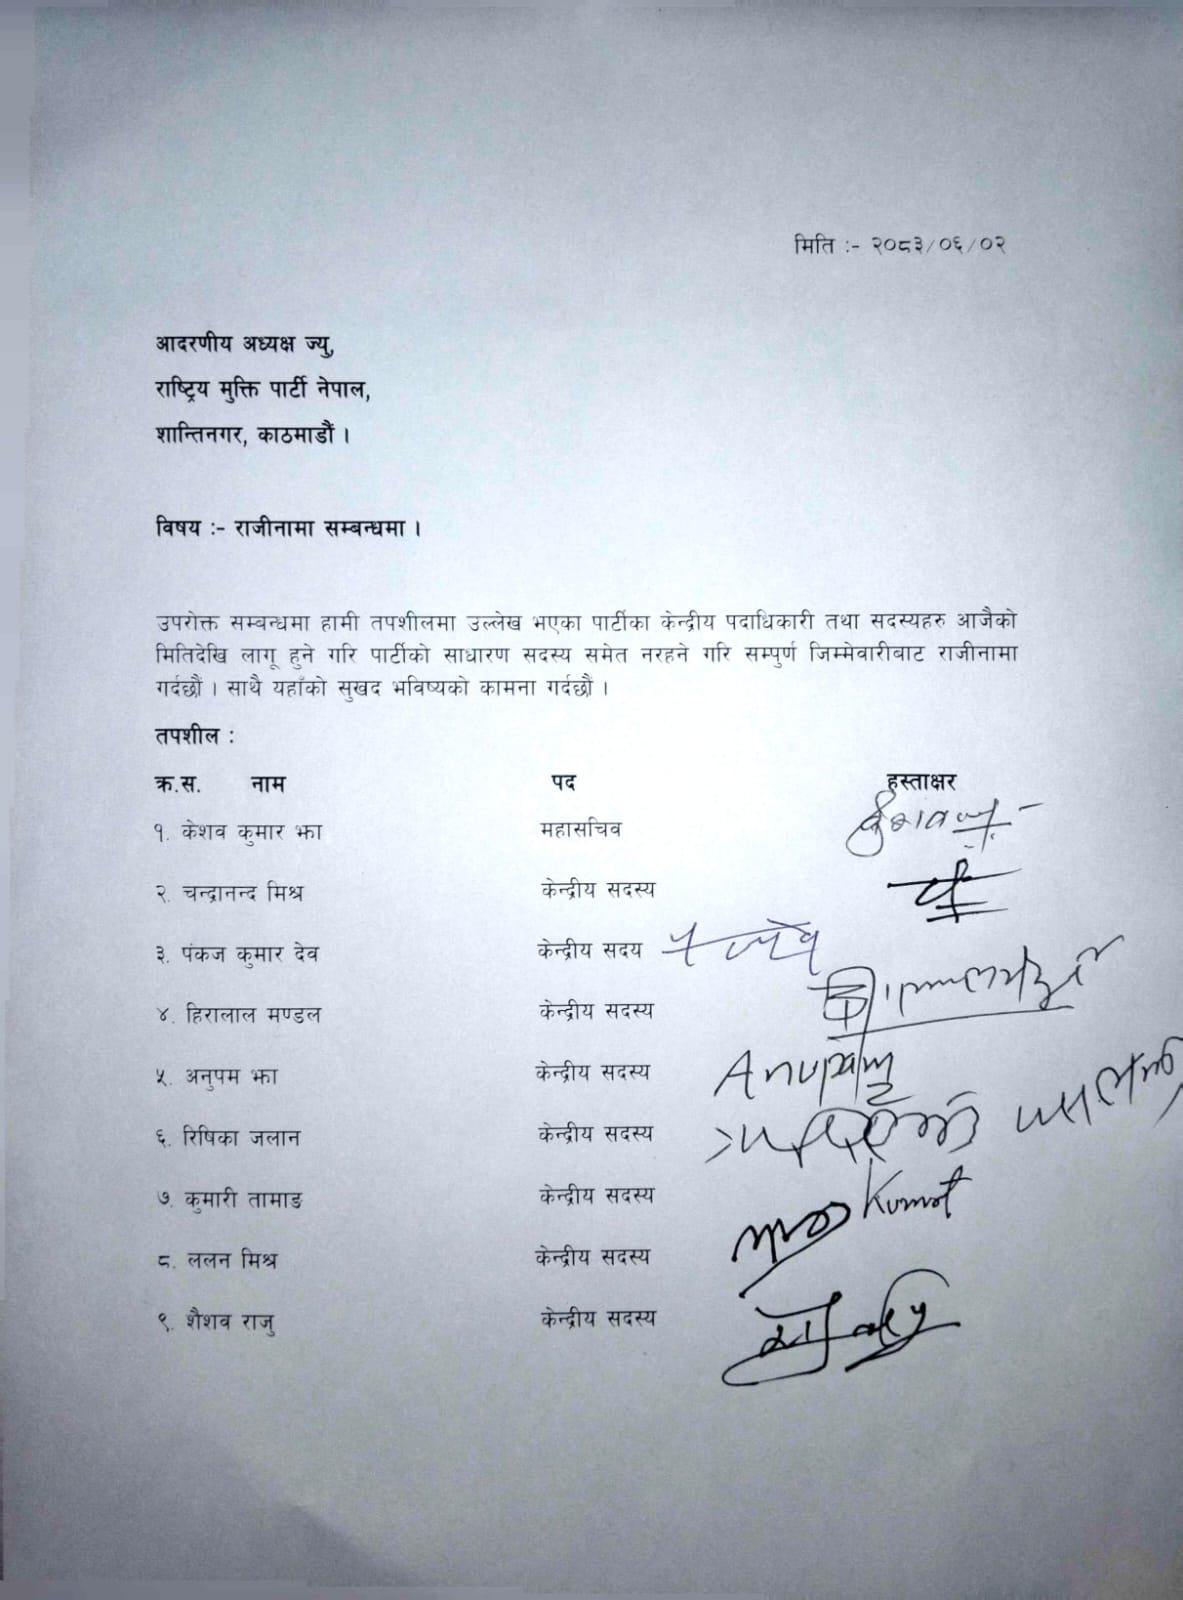 मिति :- २०८३/०६/०२
आदरणीय अध्यक्ष ज्यु,
राष्ट्रिय मुक्ति पार्टी नेपाल,
शान्तिनगर, काठमाडौं ।
विषय :- राजीनामा सम्बन्धमा ।
उपरोक्त सम्बन्धमा हामी तपशीलमा उल्लेख भएका पार्टीका केन्द्रीय पदाधिकारी तथा सदस्यहरु आजैको
मितिदेखि लागू हुने गरि पार्टीको साधारण सदस्य समेत नरहने गरि सम्पुर्ण जिम्मेवारीबाट राजीनामा
गर्दछौं । साथै यहाँको सुखद भविष्यको कामना गर्दछौं ।
तपशील :
क्र.स. नाम पद हस्ताक्षर
१. केशव कुमार झा महासचिव
२. चन्द्रानन्द मिश्र केन्द्रीय सदस्य
३. पंकज कुमार देव केन्द्रीय सदय
४. हिरालाल मण्डल केन्द्रीय सदस्य
५. अनुपम झा केन्द्रीय सदस्य
६. रिषिका जलान केन्द्रीय सदस्य
७. कुमारी तामाङ केन्द्रीय सदस्य
८. ललन मिश्र केन्द्रीय सदस्य
९. शैशव राजु केन्द्रीय सदस्य